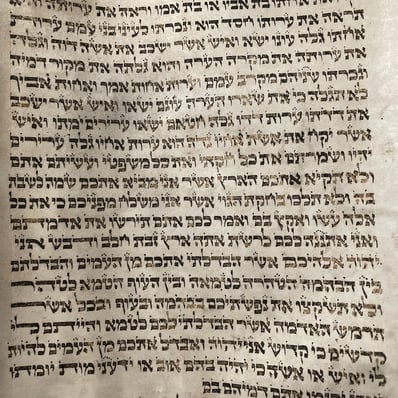 בת אביו או בת אמו וראה את ערותה והיא
תראה את ערותו חסד הוא ונכרתו לעיני בני עמם ערות
אחתו גלה עונו ישא ואיש אשר ישכב את אשה דוה וגלה
את ערותה את מקרה הערה והוא גלתה את מקור דמיה
ונכרתו שניהם מקרב עמם וערות אחות אמך ואחות אביך
לא תגלה כי את שארו הערה עונם ישאו ואיש אשר ישכב
את דדתו ערות דדו גלה חטאם ישאו ערירים ימתו ואיש
אשר יקח את אשת אחיו נדה הוא ערות אחיו גלה ערירים
יהיו ושמרתם את כל חקתי ואת כל משפטי ועשיתם אתם
ולא תקיא אתכם הארץ אשר אני מביא אתכם שמה לשבת
בה ולא תלכו בחקת הגוי אשר אני משלח מפניכם כי את כל
אלה עשו ואקץ בם ואמר לכם אתם תירשו את אדמתם
ואני אתננה לכם לרשת אתה ארץ זבת חלב ודבש אני
יהוה אלהיכם אשר הבדלתי אתכם מן העמים והבדלתם
בין הבהמה הטהרה לטמאה ובין העוף הטמא לטהר
ולא תשקצו את נפשתיכם בבהמה ובעוף ובכל אשר
תרמש האדמה אשר הבדלתי לכם לטמא והייתם לי
קדשים כי קדוש אני יהוה ואבדל אתכם מן העמים להיות
לי ואיש או אשה כי יהיה בהם אוב או ידעני מות יומתו
ירגמו אתם דמיהם בם